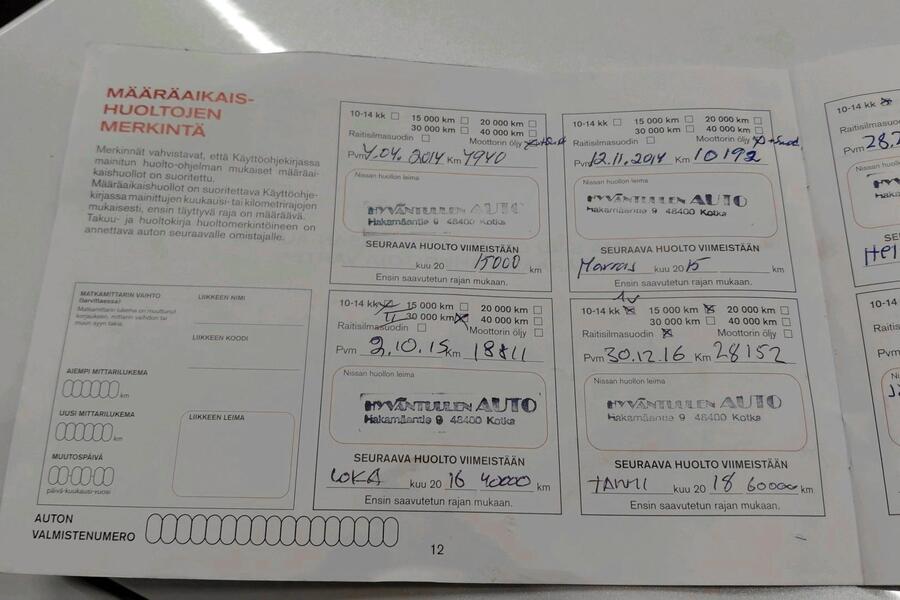 MÄÄRÄAIKAIS-
HUOLTOJEN
MERKINTÄ
Merkinnät vahvistavat, että Käyttöohjekirjassa
mainitun huolto-ohjelman mukaiset määräai-
kaishuollot on suoritettu.
Määräaikaishuollot on suoritettava Käyttöohje-
kirjassa mainittujen kuukausi- tai kilometrirajojen
mukaisesti, ensin täyttyvä raja on määräävä.
Takuu- ja huoltokirja huoltomerkintöineen on
annettava auton seuraavalle omistajalle.
MATKAMITTARIN VAIHTO
(tarvittaessa)
Matkamittarin lukema on muuttunut
korjauksen, mittarin vaihdon tai
muun syyn takia.
AIEMPI MITTARILUKEMA
km
UUSI MITTARILUKEMA
km
MUUTOSPÄIVÄ
päivä-kuukausi-vuosi
LIIKKEEN NIMI
LIIKKEEN KOODI
LIIKKEEN LEIMA
AUTON
VALMISTENUMERO
10-14 kk 15 000 km 20 000 km
30 000 km 40 000 km
Raitisilmasuodin Moottorin öljy
Pvm 7.04.2014 Km 7940
Nissan huollon leima
HYVÄNTUULEN AUTO
Hakamäentie 9 48400 Kotka
SEURAAVA HUOLTO VIIMEISTÄÄN
kuu 20 15000 km
Ensin saavutetun rajan mukaan.
10-14 kk 15 000 km 20 000 km
30 000 km 40 000 km
Raitisilmasuodin Moottorin öljy
Pvm 12.11.2014 Km 10192
Nissan huollon leima
HYVÄNTUULEN AUTO
Hakamäentie 9 48400 Kotka
SEURAAVA HUOLTO VIIMEISTÄÄN
Marras kuu 20 15 km
Ensin saavutetun rajan mukaan.
10-14 kk 15 000 km 20 000 km
30 000 km 40 000 km
Raitisilmasuodin Moottorin öljy
Pvm 2.10.15 Km 18811
Nissan huollon leima
HYVÄNTUULEN AUTO
Hakamäentie 9 48400 Kotka
SEURAAVA HUOLTO VIIMEISTÄÄN
LOKA kuu 20 16 40000 km
Ensin saavutetun rajan mukaan.
10-14 kk 15 000 km 20 000 km
30 000 km 40 000 km
Raitisilmasuodin Moottorin öljy
Pvm 30.12.16 Km 28152
Nissan huollon leima
HYVÄNTUULEN AUTO
Hakamäentie 9 48400 Kotka
SEURAAVA HUOLTO VIIMEISTÄÄN
TAMMI kuu 20 18 60000 km
Ensin saavutetun rajan mukaan.
12
10-14 kk
Pvm 28.
10-14
Pvm